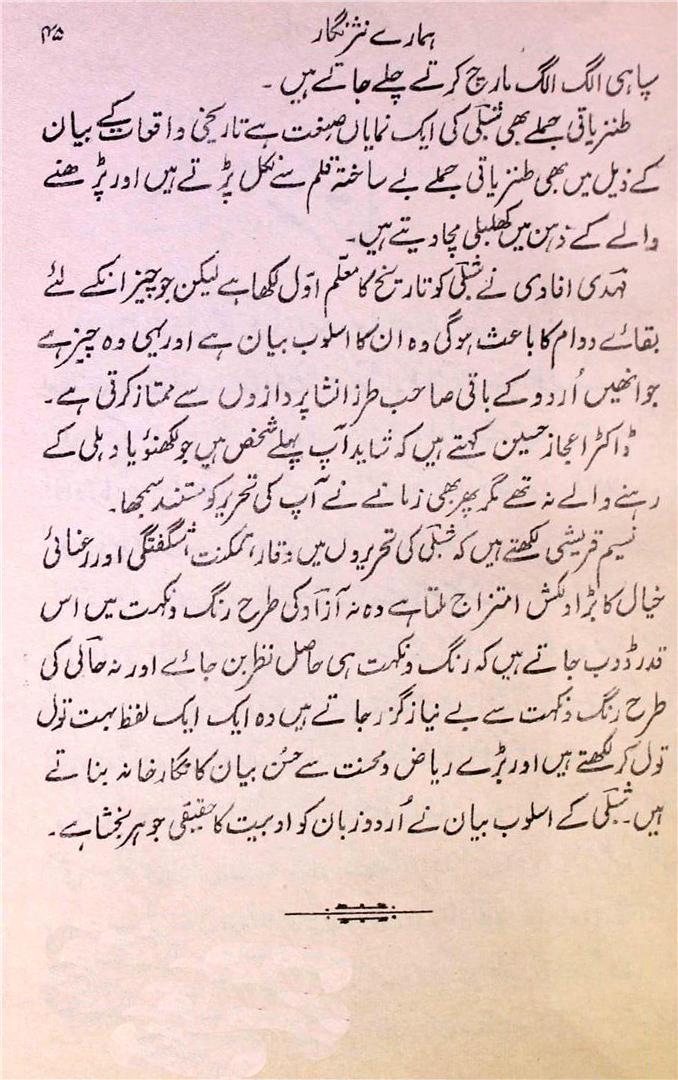 ہمارے نثر نگار
۴۵
سپاہی الگ الگ مارچ کرتے چلے جاتے ہیں ۔
طنزیاتی جملے بھی شبلی کی ایک نمایاں صفت ہے تاریخی واقعات کے بیان
کے ذیل میں بھی طنزیاتی جملے بے ساختہ قلم سے نکل پڑتے ہیں اور پڑھنے
والے کے ذہن میں کھلبلی مچا دیتے ہیں۔
مہدی افادی نے شبلی کو تاریخ کا معلّم اوّل لکھا ہے لیکن جو چیز انکے لئے
بقائے دوام کا باعث ہوگی وہ ان کا اسلوب بیان ہے اور یہی وہ چیز ہے
جو انھیں اُردو کے باقی صاحب طرز انشا پردازوں سے ممتاز کرتی ہے ۔
ڈاکٹر اعجاز حسین کہتے ہیں کہ شاید آپ پہلے شخص ہیں جو لکھنؤ یا دہلی کے
رہنے والے نہ تھے مگر پھر بھی زمانے نے آپ کی تحریر کو مستند سمجھا۔
نسیم قریشی لکھتے ہیں کہ شبلی کی تحریروں میں وقار، تمکنت، شگفتگی اور رعنائی
خیال کا بڑا دلکش امتزاج ملتا ہے وہ نہ آزاد کی طرح رنگ و نکہت میں اس
قدر ڈوب جاتے ہیں کہ رنگ و نکہت ہی حاصل نظر بن جائے اور نہ حالی کی
طرح رنگ و نکہت سے بے نیاز گزر جاتے ہیں وہ ایک ایک لفظ بہت تول
تول کر لکھتے ہیں اور بڑے ریاض و محنت سے حسن بیان کا نگارخانہ بناتے
ہیں۔ شبلی کے اسلوب بیان نے اُردو زبان کو ادبیت کا حقیقی جوہر بخشا ہے ۔